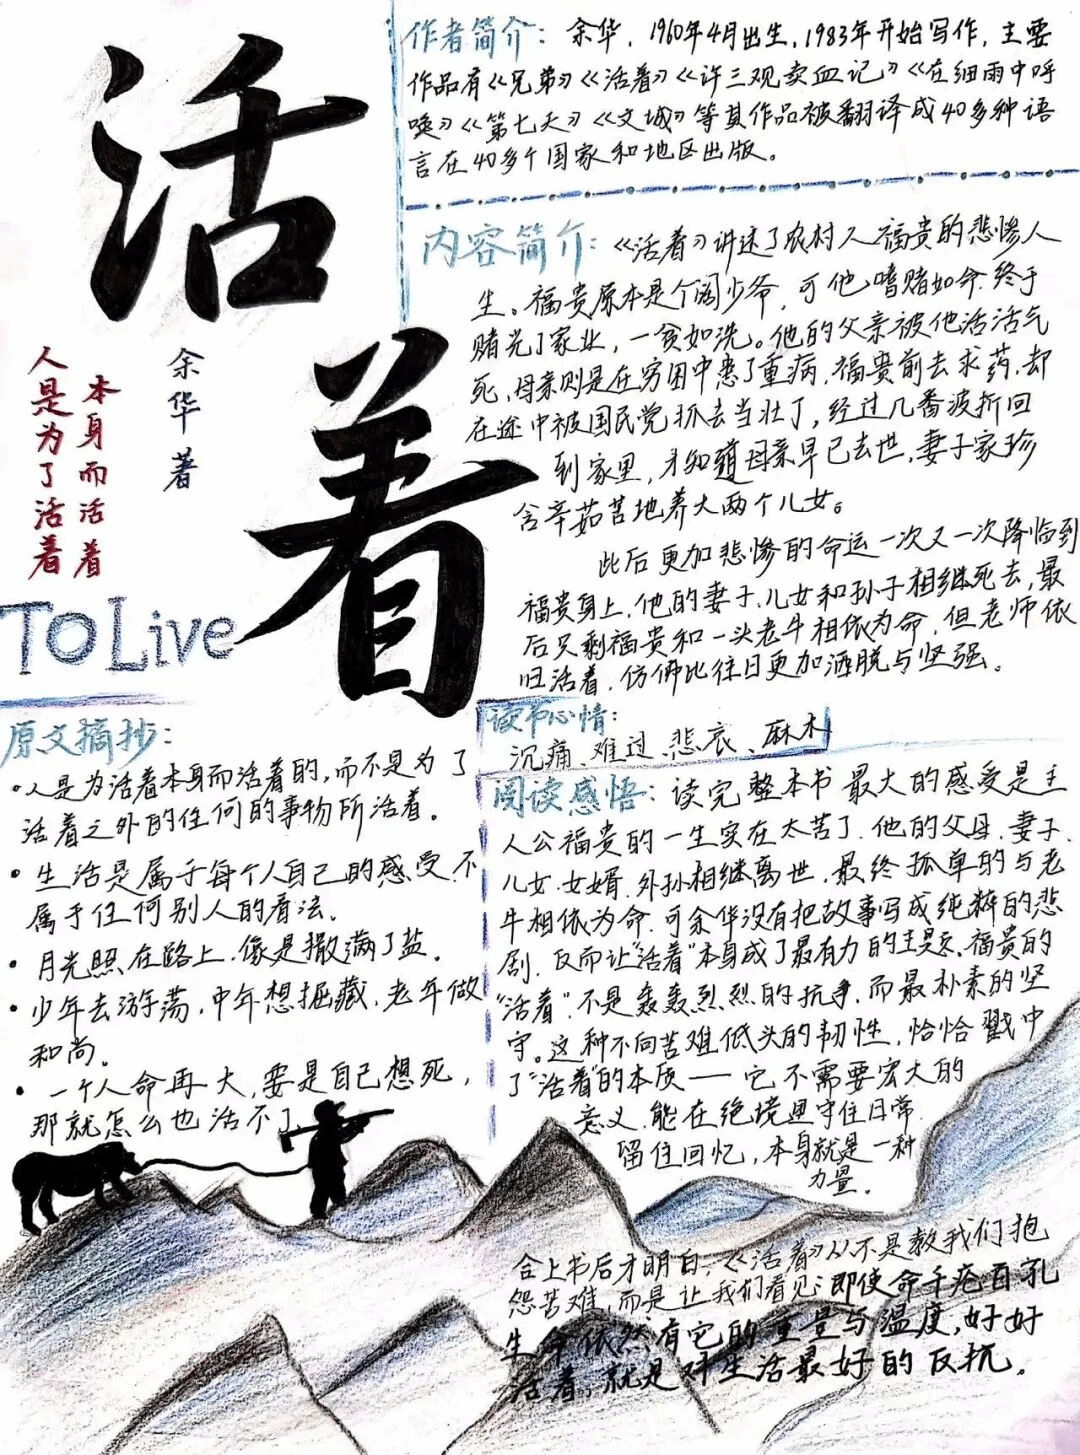 活着
余华著
人是为了活着
本身而活着
To Live
作者简介：余华，1960年4月出生，1983年开始写作，主要
作品有《兄弟》《活着》《许三观卖血记》《在细雨中呼
唤》《第七天》《文城》等其作品被翻译成40多种语
言在40多个国家和地区出版。
内容简介：《活着》讲述了农村人福贵的悲惨人
生。福贵原本是个阔少爷，可他嗜赌如命，终于
赌光了家业，一贫如洗。他的父亲被他活活气
死，母亲则是在穷困中患了重病，福贵前去求药，却
在途中被国民党抓去当壮丁，经过几番波折回
到家里，才知道母亲早已去世，妻子家珍
含辛茹苦地养大两个儿女。
此后更加悲惨的命运一次又一次降临到
福贵身上，他的妻子、儿女和孙子相继死去，最
后只剩福贵和一头老牛相依为命，但老师依
旧活着，仿佛比往日更加洒脱与坚强。
原文摘抄：
·人是为活着本身而活着的，而不是为了
活着之外的任何的事物所活着。
·生活是属于每个人自己的感受，不
属于任何别人的看法。
·月光照在路上，像是撒满了盐。
·少年去游荡，中年想掘藏，老年做
和尚。
·一个人命再大，要是自己想死，
那就怎么也活不了
读书心情：
沉痛、难过、悲哀、麻木
阅读感悟：读完整本书最大的感受是主
人公福贵的一生实在太苦了，他的父母、妻子、
儿女、女婿、外孙相继离世，最终孤单的与老
牛相依为命，可余华没有把故事写成纯粹的悲
剧，反而让“活着”本身成了最有力的主题。福贵的
“活着”，不是轰轰烈烈的抗争，而最朴素的坚
守。这种不向苦难低头的韧性，恰恰戳中
了“活着”的本质——它不需要宏大的
意义，能在绝境里守住日常，
留住回忆，本身就是一种
力量。
合上书后才明白，《活着》从不是教我们抱
怨苦难，而是让我们看见：即使命千疮百孔
生命依然有它的重量与温度，好好
活着，就是对生活最好的反抗。